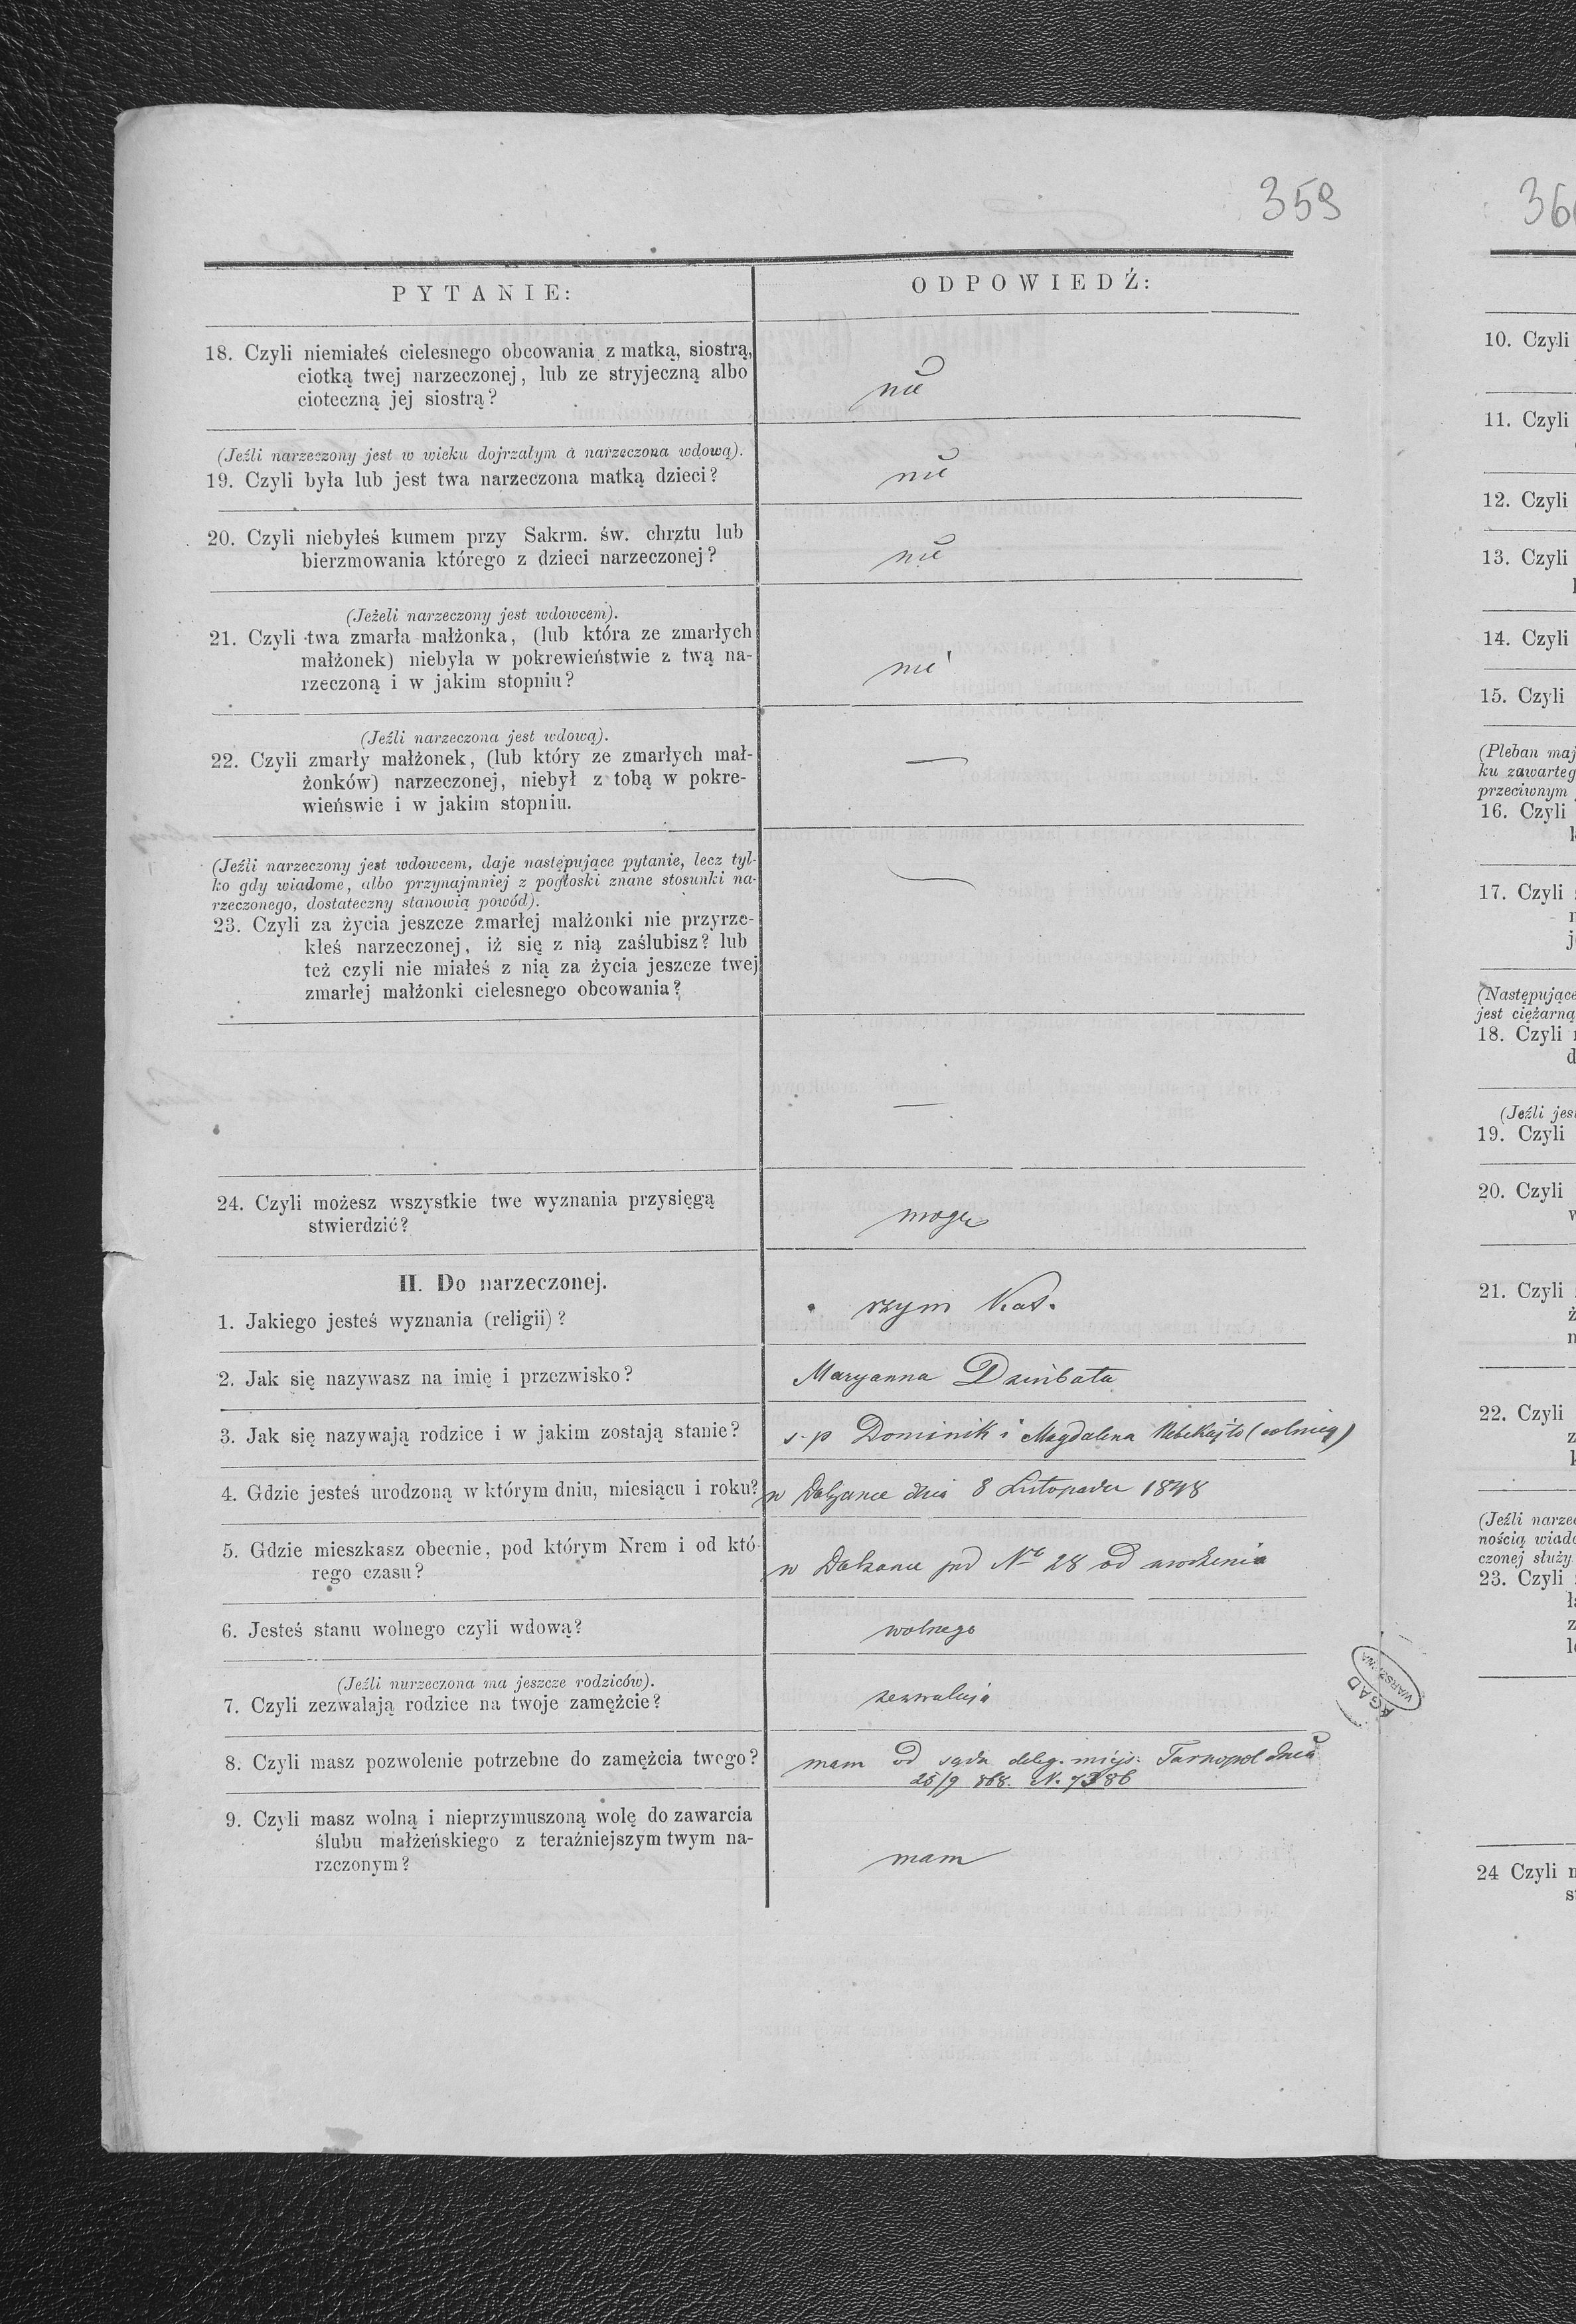 359
36
PYTANIE:
ODPOWIEDŹ:
18. Czyli niemiałeś cielesnego obcowania z matką, siostrą,
ciotką twej narzeczonej, lub ze stryjeczną albo
cioteczną jej siostrą?
nie
(Jeźli narzeczony jest w wieku dojrzałym à narzeczona wdową).
19. Czyli była lub jest twa narzeczona matką dzieci?
nie
20. Czyli niebyłeś kumem przy Sakrm. św. chrztu lub
bierzmowania którego z dzieci narzeczonej?
nie
(Jeżeli narzeczony jest wdowcem).
21. Czyli twa zmarła małżonka, (lub która ze zmarłych
małżonek) niebyła w pokrewieństwie z twą na-
rzeczoną i w jakim stopniu?
nie
(Jeźli narzeczona jest wdową).
22. Czyli zmarły małżonek, (lub który ze zmarłych mał-
żonków) narzeczonej, niebył z tobą w pokre-
wieńswie i w jakim stopniu.
—
(Jeźli narzeczony jest wdowcem, daje następujące pytanie, lecz tyl-
ko gdy wiadome, albo przynajmniej z pogłoski znane stosunki na-
rzeczonego, dostateczny stanowią powód).
23. Czyli za życia jeszcze zmarłej małżonki nie przyrze-
kłeś narzeczonej, iż się z nią zaślubisz? lub
też czyli nie miałeś z nią za życia jeszcze twej
zmarłej małżonki cielesnego obcowania?
—
—
24. Czyli możesz wszystkie twe wyznania przysięgą
stwierdzić?
mogę
II. Do narzeczonej.
1. Jakiego jesteś wyznania (religii)?
rzym Kat.
2. Jak się nazywasz na imię i przezwisko?
Maryanna
3. Jak się nazywają rodzice i w jakim zostają stanie?
s. p Dominik i Magdalena
4. Gdzie jesteś urodzoną w którym dniu, miesiącu i roku?
w dnia 8 Listopada 1848
5. Gdzie mieszkasz obecnie, pod którym Nrem i od któ-
rego czasu?
w pod No 28 od urodzenia
6. Jesteś stanu wolnego czyli wdową?
wolnego
(Jeźli nurzeczona ma jeszcze rodziców).
7. Czyli zezwalają rodzice na twoje zamężcie?
zezwalają
8. Czyli masz pozwolenie potrzebne do zamężcia twego?
mam od sądu deleg. miejs. Tarnopol dnia
868. N. 7386
9. Czyli masz wolną i nieprzymuszoną wolę do zawarcia
ślubu małżeńskiego z teraźniejszym twym na-
rzczonym?
mam
AGAD
WARSZAWA
10. Czyli
11. Czyli
12. Czyli
13. Czyli
14. Czyli
15. Czyli
(Pleban maj
ku zawarteg
przeciwnym
16. Czyli
17. Czyli
j
(Następujące
jest ciężarną
18. Czyli
d
(Jeźli jes
19. Czyli
20. Czyli
w
21. Czyli
ż
n
22. Czyli
z
k
(Jeźli narze
nością wiado
czonej służy
23. Czyli
ł
z
l
24 Czyli
s